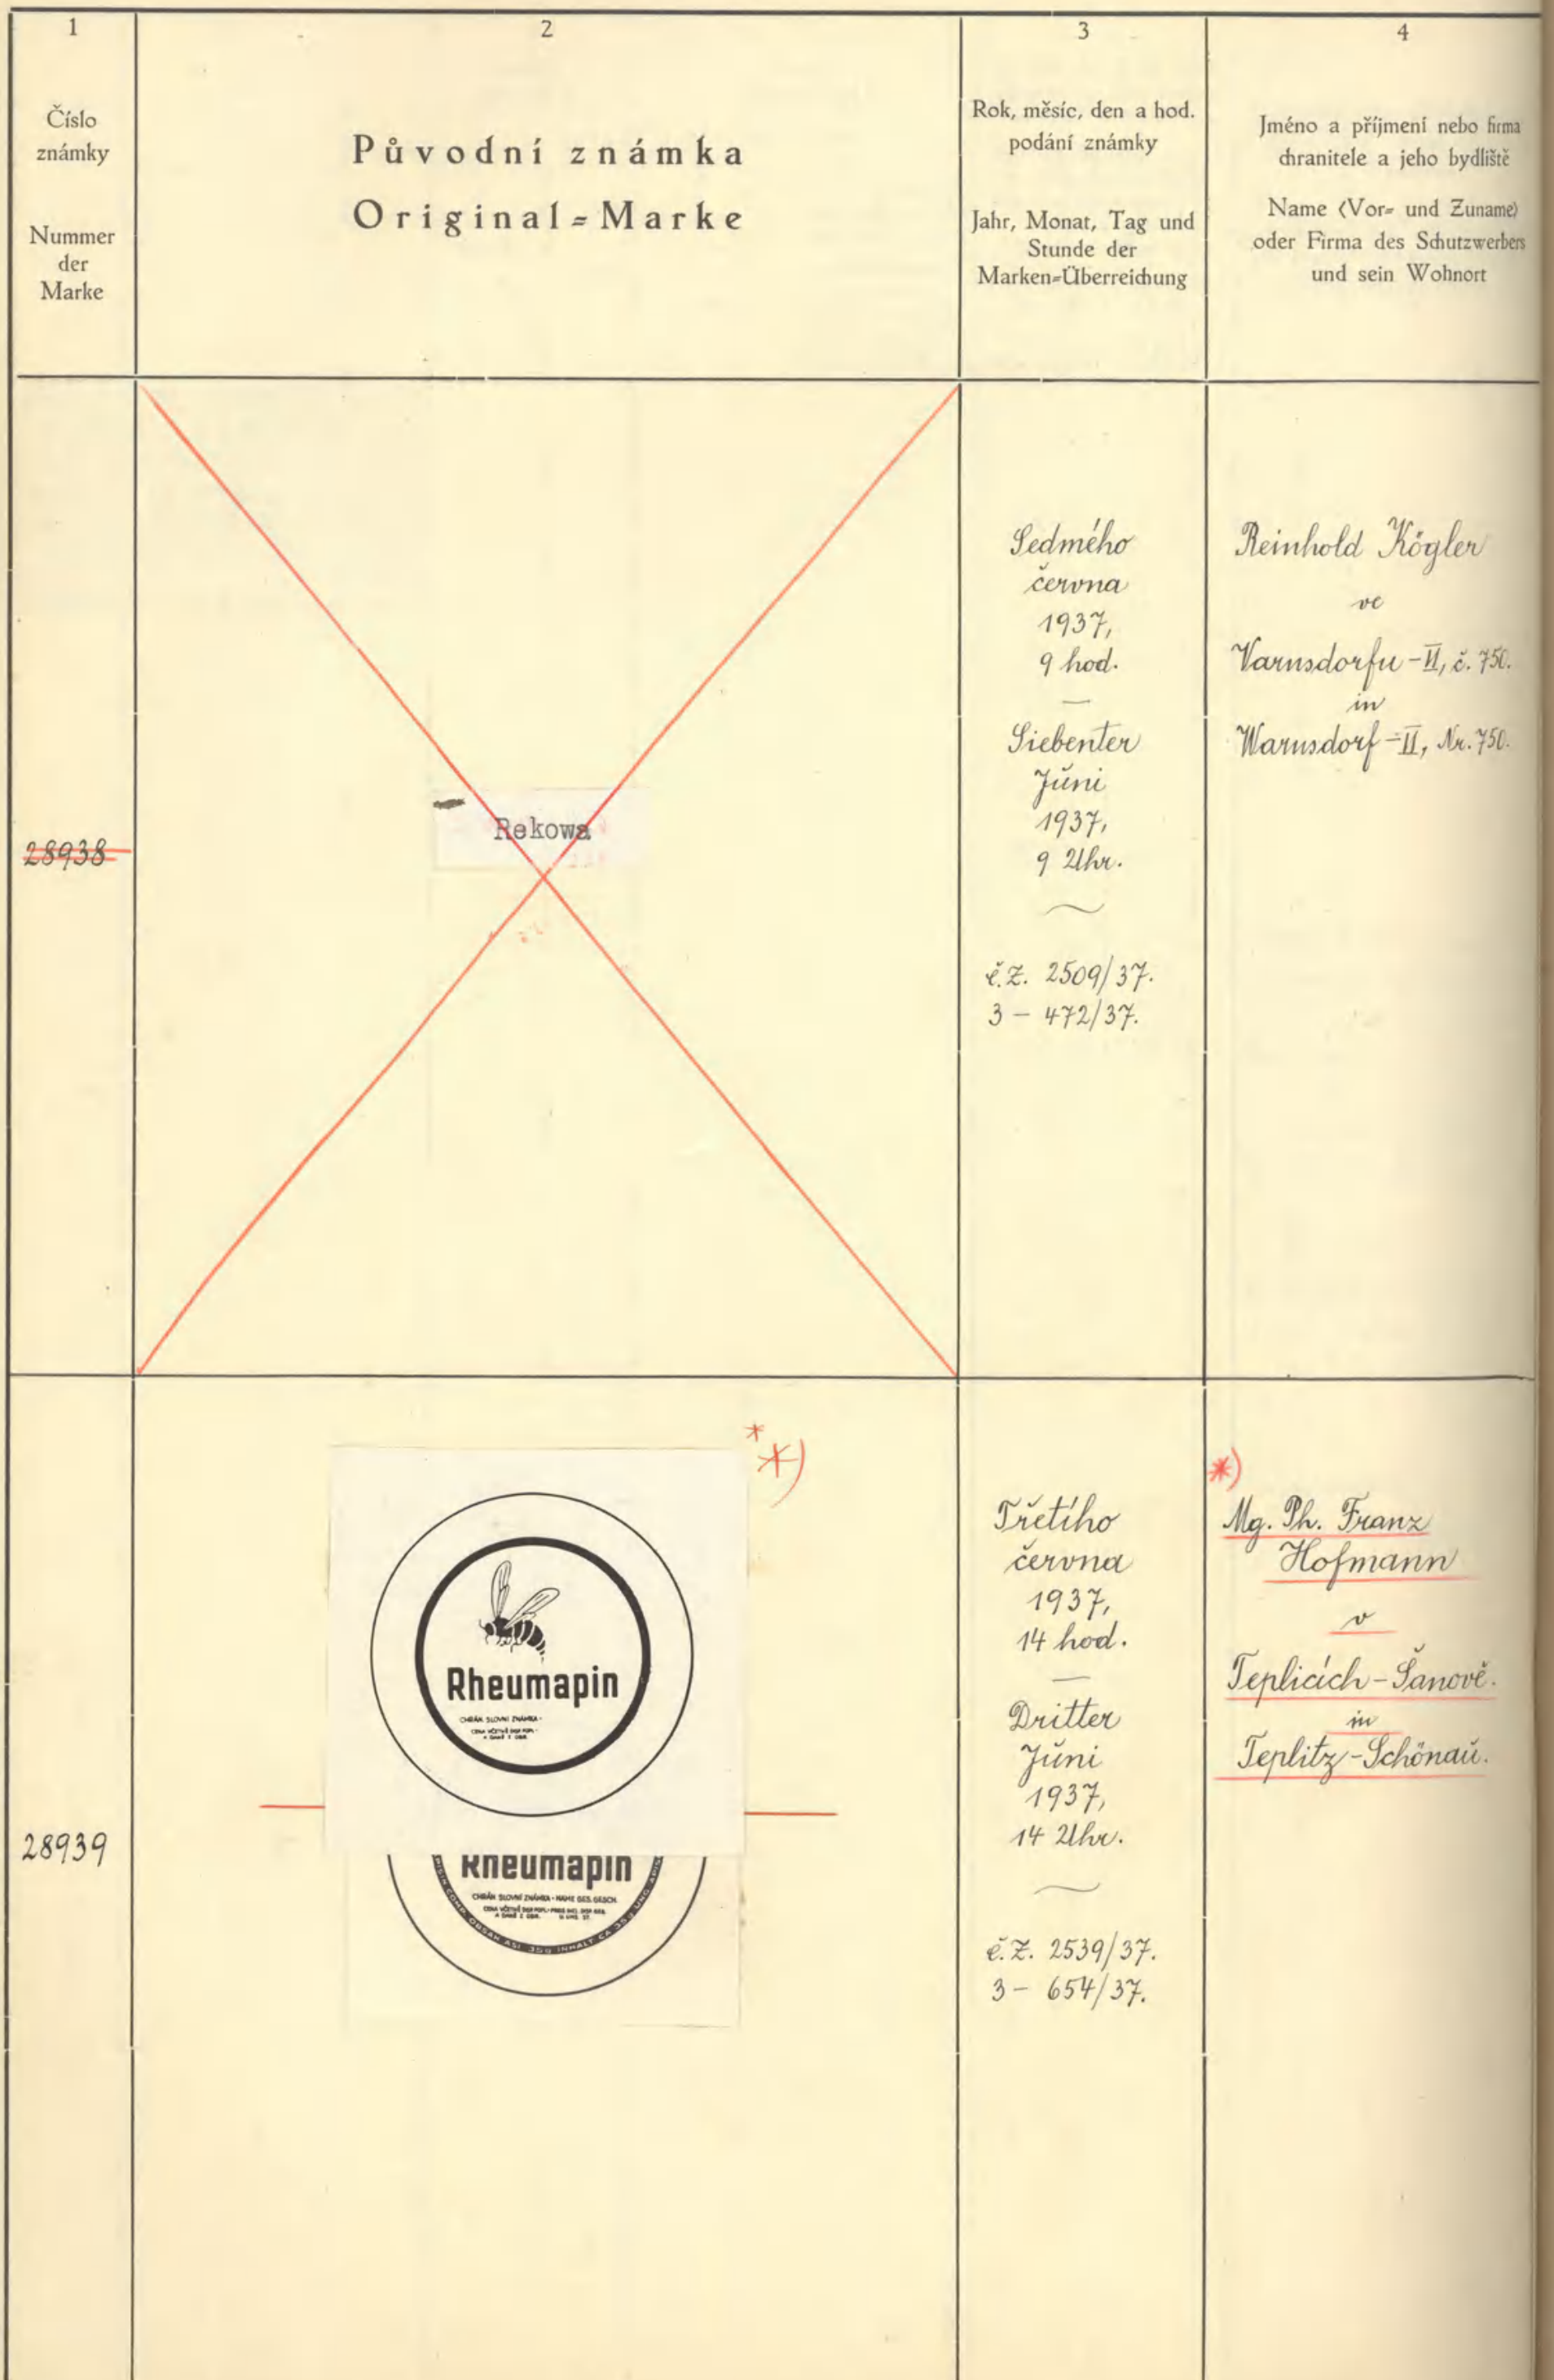 1
2
3
4
Číslo
známky
Nummer
der
Marke
Původní známka
Original=Marke
Rok, měsíc, den a hod.
podání známky
Jahr, Monat, Tag und
Stunde der
Marken=Überreichung
Jméno a příjmení nebo firma
chranitele a jeho bydliště
Name (Vor= und Zuname)
oder Firma des Schutzwerbers
und sein Wohnort
28938
Rekowa
Sedmého
června
1937,
9 hod.
—
Siebenter
Juni
1937,
9 Uhr.
č.ž. 2509/37.
3 – 472/37.
Reinhold Kögler
ve
Varnsdorfu-II, č. 750.
in
Warnsdorf-II, Nr. 750.
28939
**)
Rheumapin
CHRÁN. SLOVNÍ ZNÁMKA ·
Rheumapin
CHRÁN. SLOVNÍ ZNÁMKA · NAME GES. GESCH.
OBSAH ASI 35g INHALT CA 35g
Třetího
června
1937,
14 hod.
—
Dritter
Juni
1937,
14 Uhr.
č.ž. 2539/37.
3 – 654/37.
*)
Mg. Ph. Franz
Hofmann
v
Teplicích-Šanově.
in
Teplitz-Schönau.